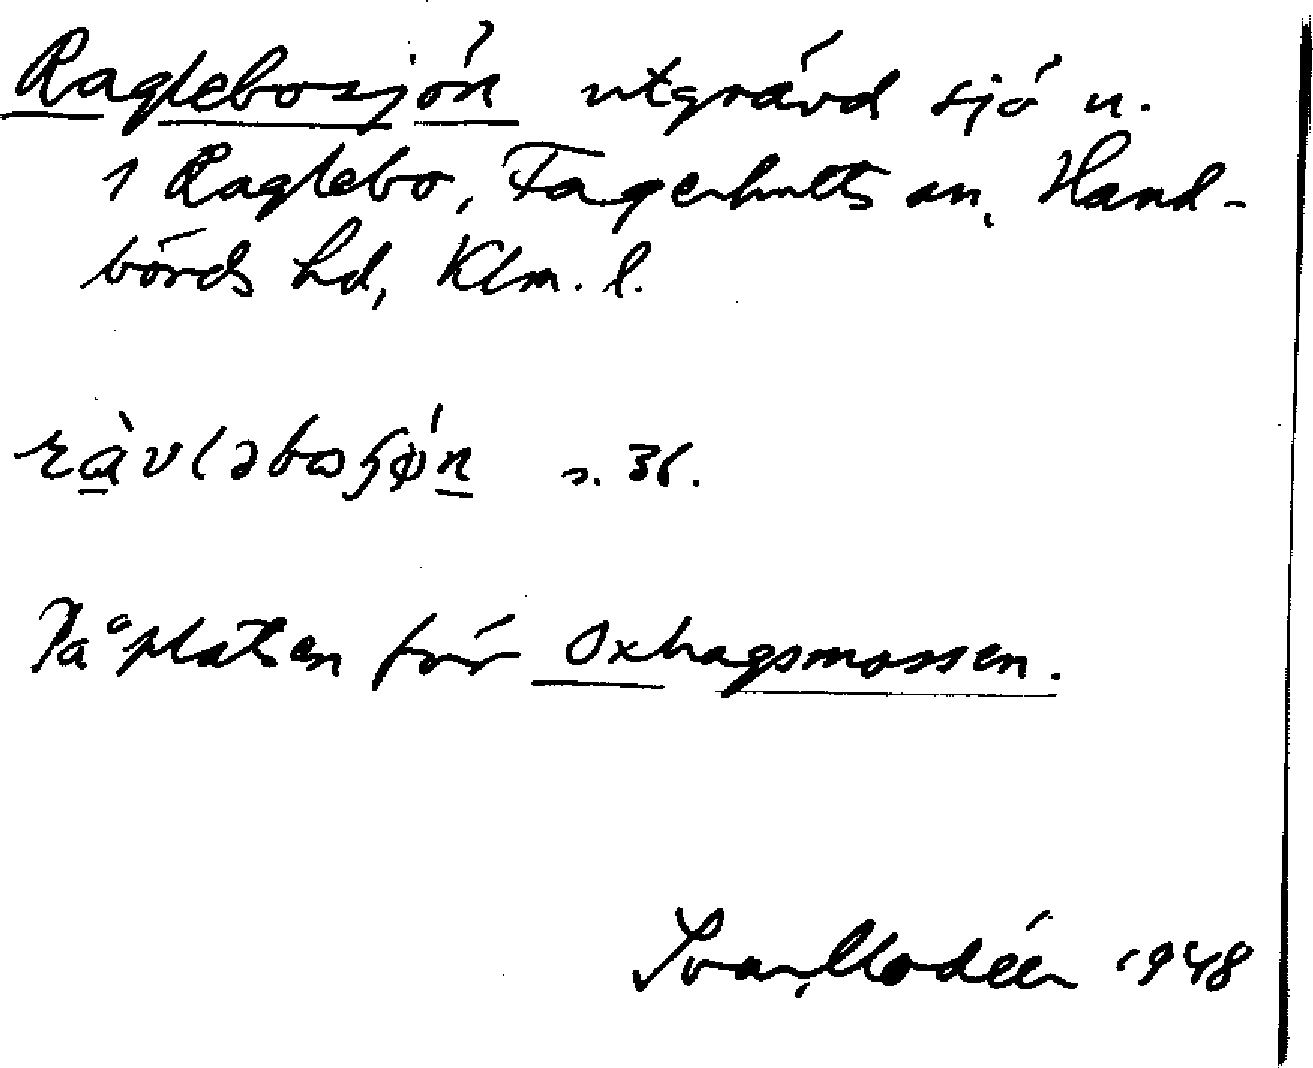 Raglebosjön utgrävd sjö u.
1 Raglebo, Fagerhults sn, Hand-
börds hd, Klm. l.
ràvləbosjǿn s. 36.
På platsen för Oxhagsmossen.
Ivar Modéer 1948